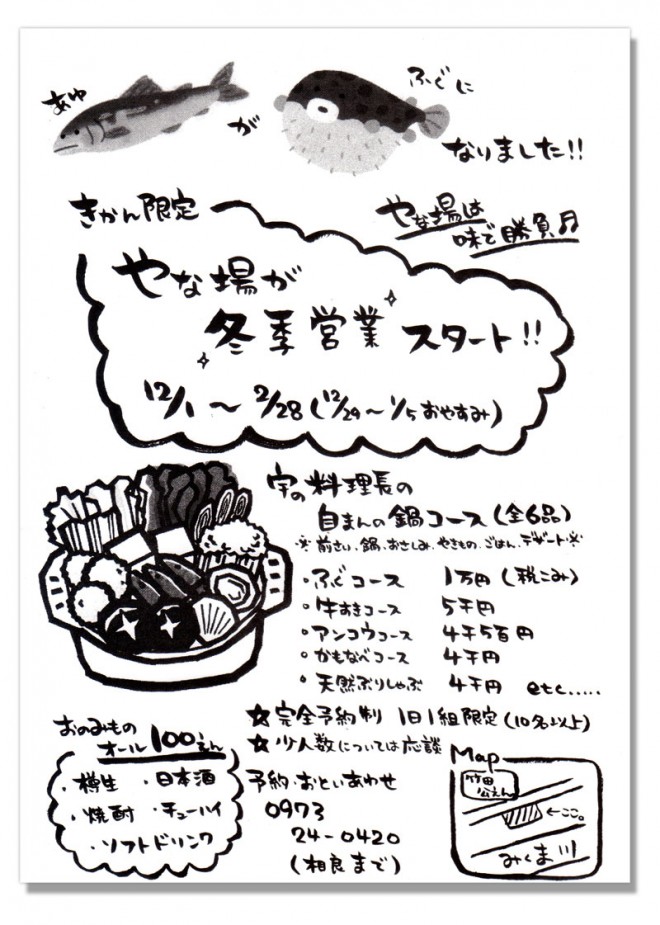 あゆ
が
ふぐに
なりました!!
きかん限定
やな場は
味で勝負!!
やな場が
冬季営業スタート!!
12/1〜2/28(12/29〜1/5おやすみ)
自まんの鍋コース(全6品)
※前さい、鍋、おさしみ、やきもの、ごはん、デザート※
・ふぐコース 1万円(税こみ)
・牛すきコース 5千円
・アンコウコース 4千5百円
・かもなべコース 4千円
・天然ぶりしゃぶ 4千円 etc.....
☆完全予約制 1日1組限定(10名以上)
☆少人数については応談
おのみもの
オール100えん
・樽生 ・日本酒
・焼酎 ・チューハイ
・ソフトドリンク
予約・おといあわせ
0973
24-0420
(相良まで)
Map
竹田
公えん
←ここ。
みくま川